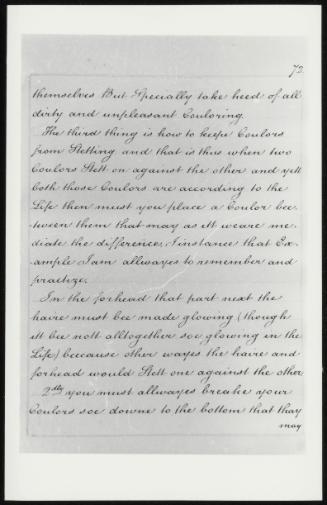 72.
themselves But Specially take heed of all
dirty and unpleasant Couloring.
The third thing is how to keepe Coulors
from Stetting and that is thus when two
Coulors Stett on against the other and yett
both those Coulors are according to the
Life then must you place a Coulor bee.
tween them that may as itt weare me.
diate the difference, Jnstance that Ex.
ample I am allwayes to remember and
practize.
In the forhead that part next the
haire must bee made glowing (though
itt bee nott alltogether soe glowing in the
Life) beecause other wayes the haire and
forhead would Stett one against the other
2dly you must allwayes breake your
Coulors soe downe to the bottom that thay
may